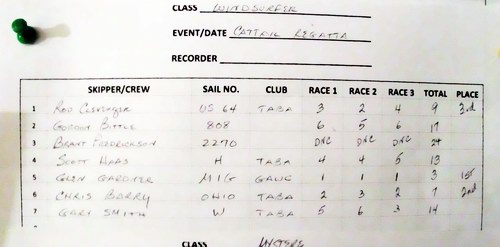 CLASS WINDSURFER
EVENT/DATE CATTAIL REGATTA
RECORDER
SKIPPER/CREW SAIL NO. CLUB RACE 1 RACE 2 RACE 3 TOTAL PLACE
1 ROD US 64 TABA 3 2 4 9 3rd
2 GORDON BITTLE 808 6 5 6 17
3 BRANT FREDRICKSON 2270 DNC DNC DNC 24
4 SCOTT HAAS H TABA 4 4 5 13
5 GLEN GARDINER MIG 1 1 1 3 1ST
6 CHRIS BARRY OHIO TABA 2 3 2 7 2nd
7 GARY SMITH W TABA 5 6 3 14
CLASS